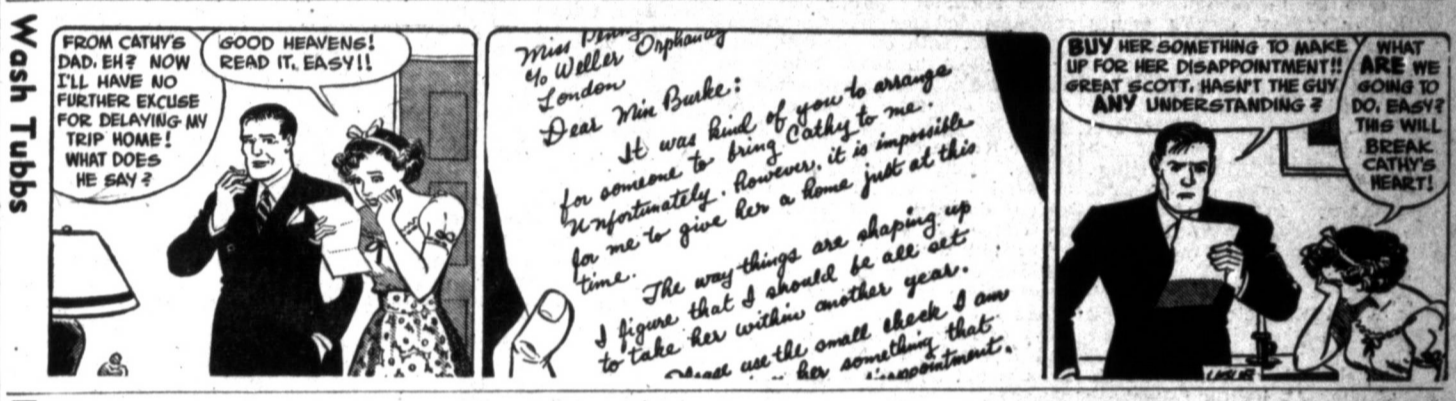 Wash Tubbs
FROM CATHY'S
DAD, EH? NOW
I'LL HAVE NO
FURTHER EXCUSE
FOR DELAYING MY
TRIP HOME!
WHAT DOES
HE SAY?
GOOD HEAVENS!
READ IT, EASY!!
Miss Penny
c/o Weller Orphanag
London
Dear Miss Burke:
It was kind of you to arrange
for someone to bring Cathy to me.
Unfortunately, however, it is impossible
for me to give her a home just at this
time.
The way things are shaping up
I figure that I should be all set
to take her within another year.
Please use the small check I am
her something that
disappointment.
BUY HER SOMETHING TO MAKE
UP FOR HER DISAPPOINTMENT!!
GREAT SCOTT, HASN'T THE GUY
ANY UNDERSTANDING?
WHAT
ARE WE
GOING TO
DO, EASY?
THIS WILL
BREAK
CATHY'S
HEART!